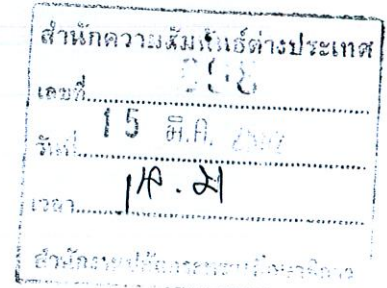 สำนักความสัมพันธ์ต่างประเทศ
เลขที่
วันที่ 15 มี.ค.
เวลา
สำนักงานปลัดกระทรวงศึกษาธิการ